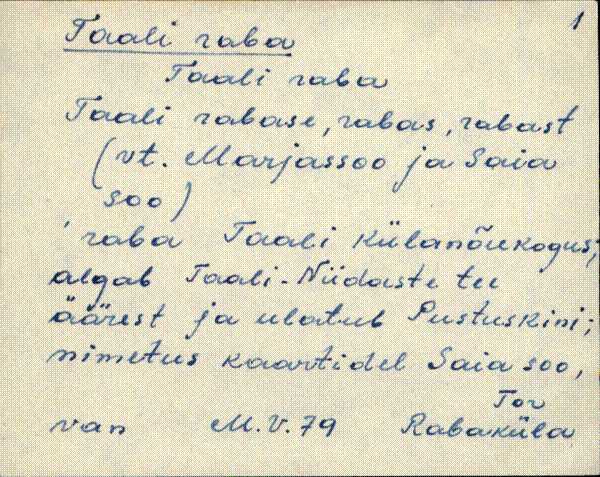 1
Taali raba
Taali raba
Taali rabase, rabas, rabast
(vt. Marjassoo ja Saia
soo)
, raba Taali külanõukogus;
algab Taali-Niidaste tee
äärest ja ulatub Pustuskini;
nimetus kaartidel Saia soo,
Tor
van M.V.79 Rabaküla